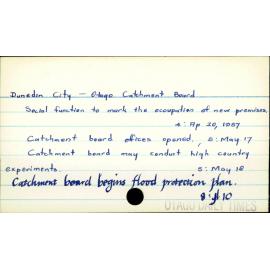 Dunedin City - Otago Catchment Board
Social function to mark the occupation of new premises.
4: Ap 20, 1957
Catchment board offices opened, 5: May 17
Catchment board may conduct high country
experiments. 5: May 18
Catchment board begins flood protection plan.
8: 10
OTAGO DAILY TIMES